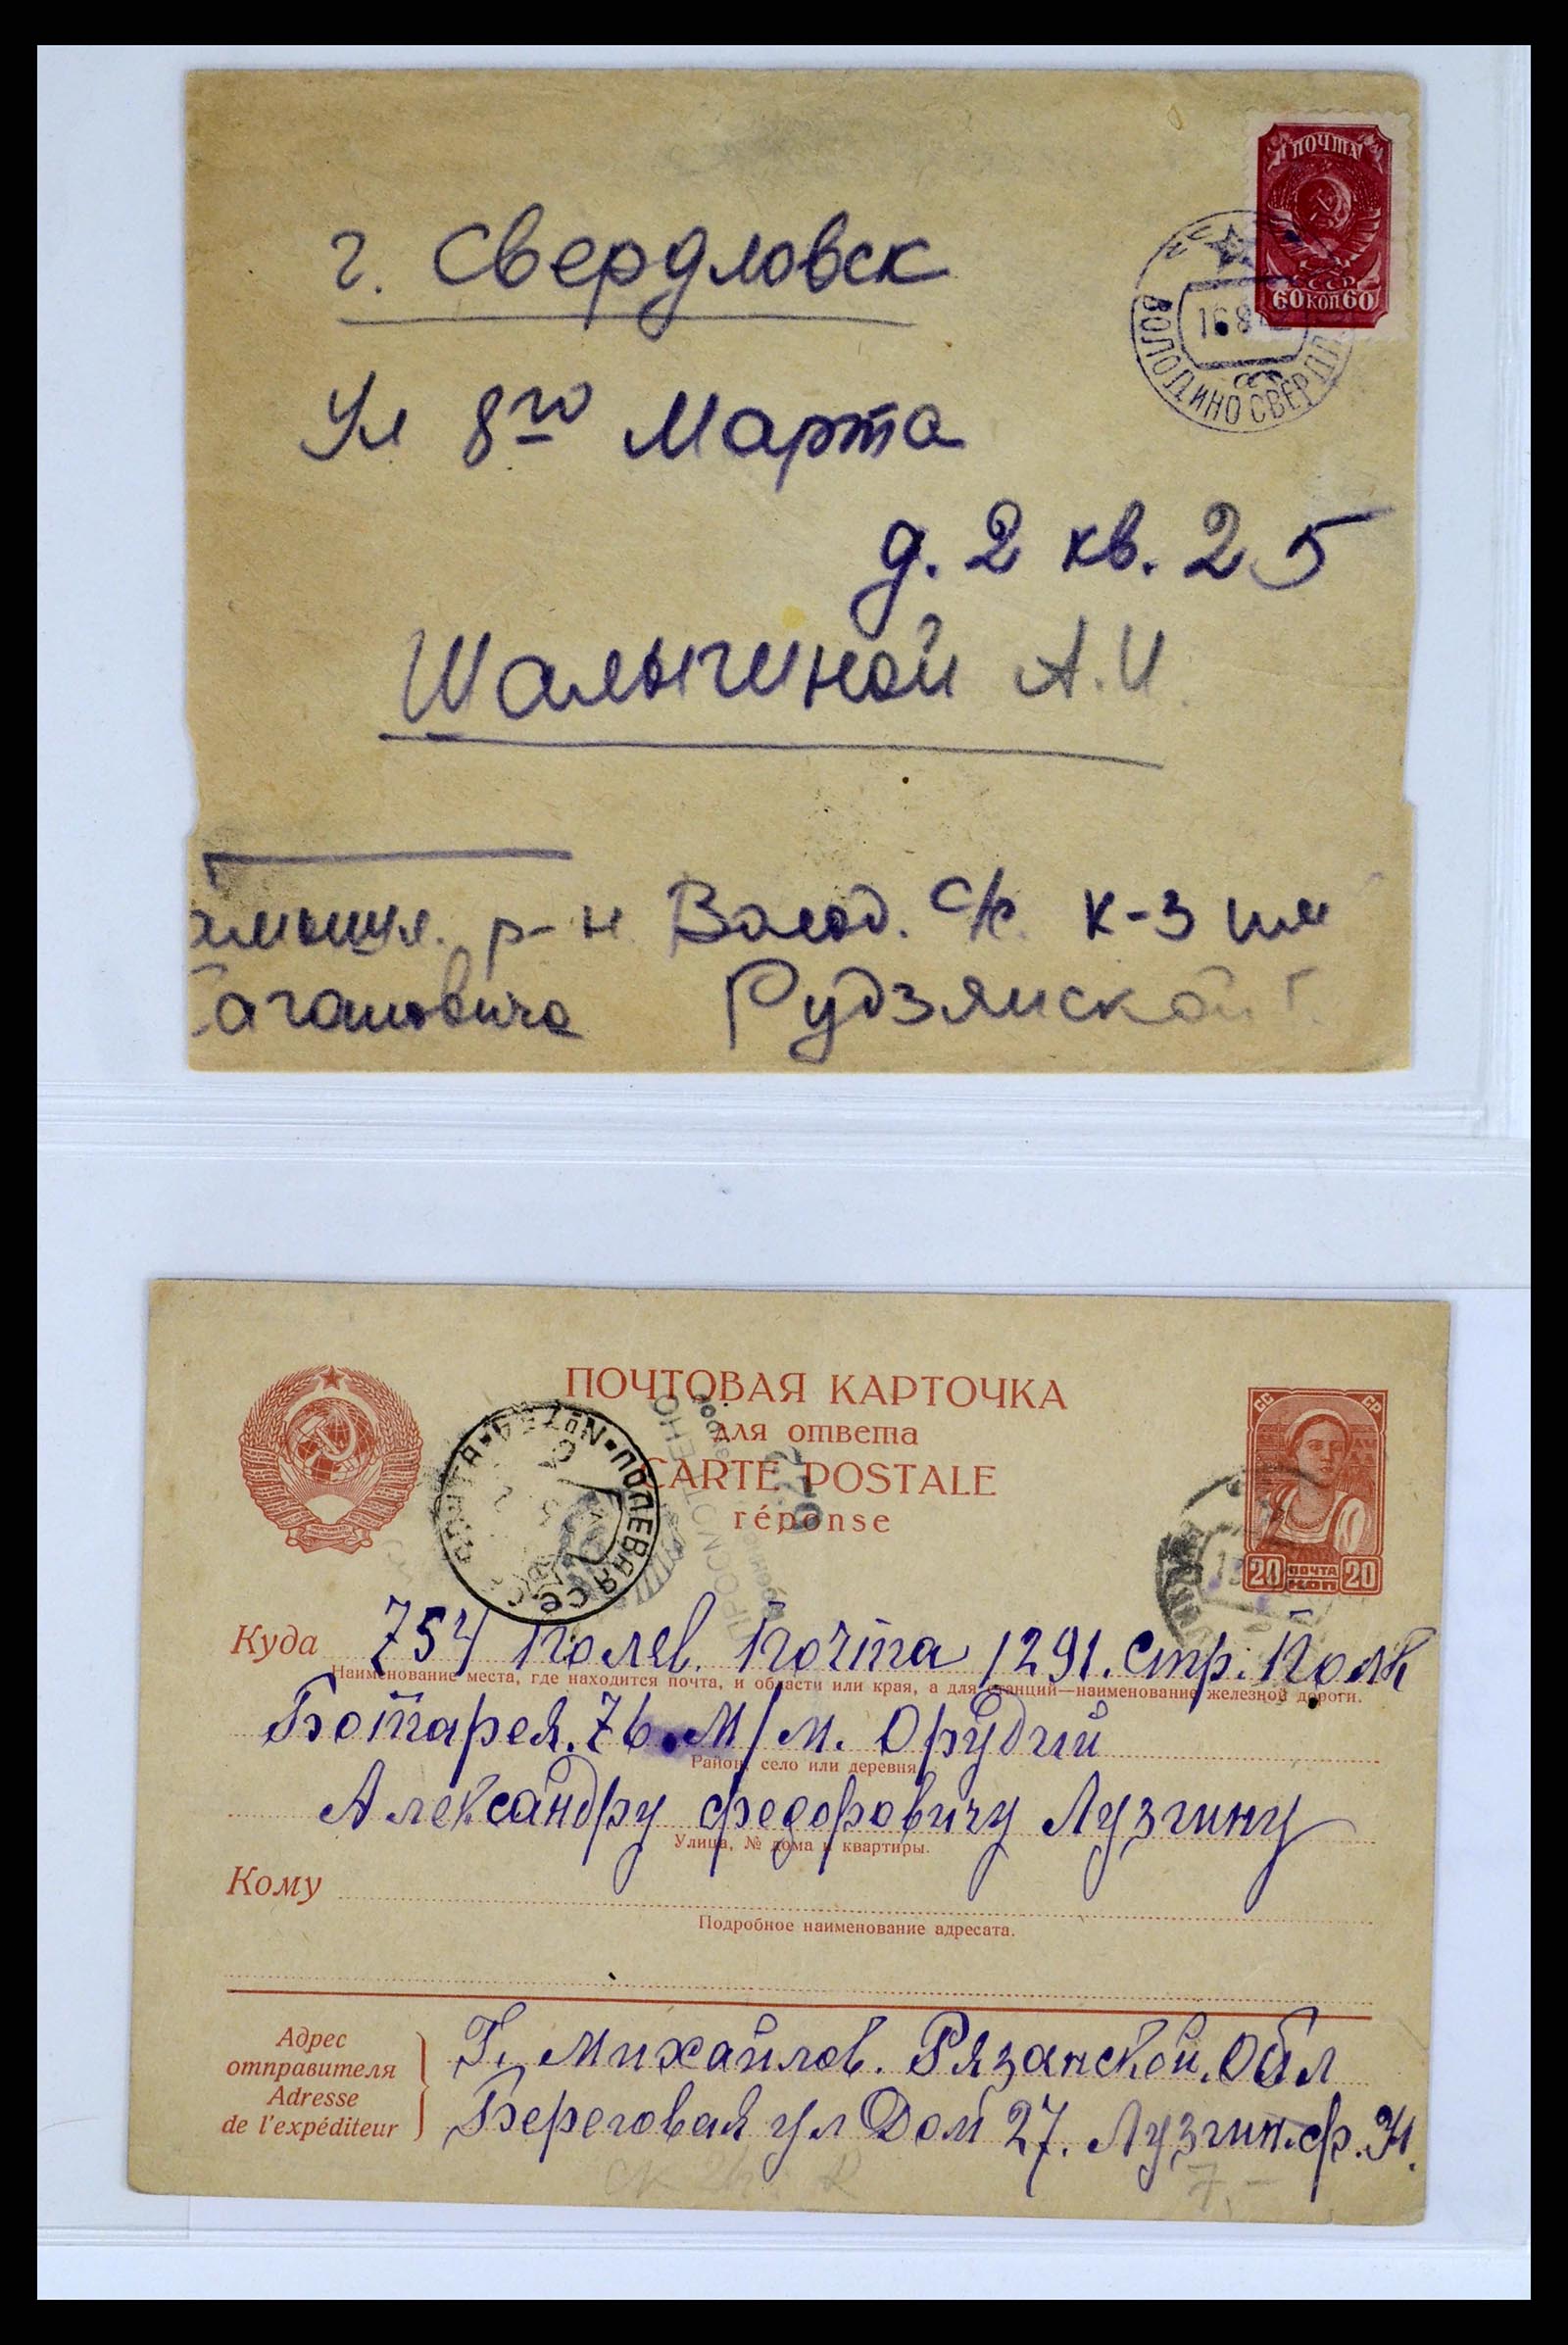 ПОЧТА
СССР
60 КОП 60
ВОЛОДИНО СВЕРДЛ
г. Свердловск
Ул 8го Марта
д. 2 кв. 25
Шалыгиной А.И.
р-н Волод. с/с. к-з им
Рудзянской Г.
ПОЧТОВАЯ КАРТОЧКА
для ответа
CARTE POSTALE
réponse
СС СР
20 ПОЧТА КОП 20
ПОЛЕВАЯ
ПРОСМОТРЕНО
Куда 754 Полев. Почта 1291. Стр. Полк
Наименование места, где находится почта, и области или края, а для станций—наименование железной дороги.
Ботарея. 76. М/м. Орудгий
Район, село или деревня
Александру Федоровичу Лузгину
Улица, № дома и квартиры.
Кому
Подробное наименование адресата.
Адрес
отправителя
Adresse
de l'expéditeur
Г. Михайлов. Рязанской. Обл
Береговая ул Дом 27. Лузгин. Ф. Н.
7,-